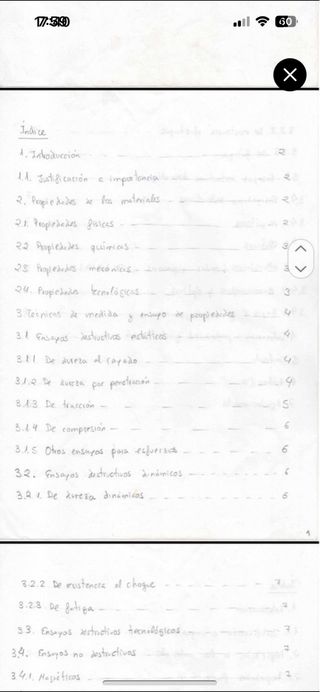 60
Índice
1. Introducción 2
1.1. Justificación e importancia 2
2. Propiedades de los materiales 2
2.1. Propiedades físicas 2
2.2 Propiedades químicas 3
2.3 Propiedades mecánicas 3
2.4. Propiedades tecnológicas 3
3 Técnicas de medida y ensayo de propiedades 4
3.1 Ensayos destructivos estáticos 4
3.1.1 De dureza al rayado 4
3.1.2 De dureza por penetración 4
3.1.3 De tracción 5
3.1.4 De compresión 6
3.1.5 Otros ensayos para esfuerzos 6
3.2. Ensayos destructivos dinámicos 6
3.2.1. De dureza dinámicos 6
1
3.2.2. De resistencia al choque 7
3.2.3. De fatiga 7
3.3. Ensayos destructivos tecnológicos 7
3.4. Ensayos no destructivos 7
3.4.1. Magnéticos 7